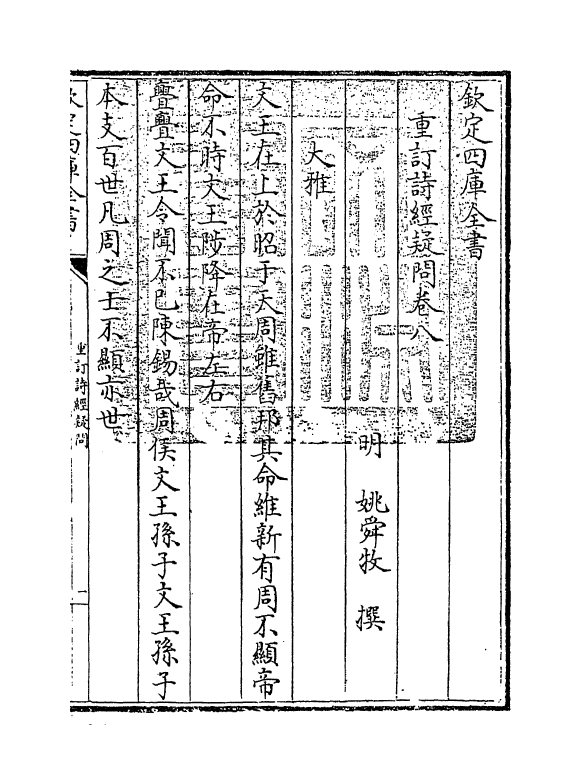 欽定四庫全書
重訂詩經疑問卷八
明 姚舜牧 撰
大雅
文王在上於昭于天周雖舊邦其命維新有周不顯帝
命不時文王陟降在帝左右
亹亹文王令聞不已陳錫哉周侯文王孫子文王孫子
本支百世凡周之士不顯亦世
欽定四庫全書
重訂詩經疑問
一